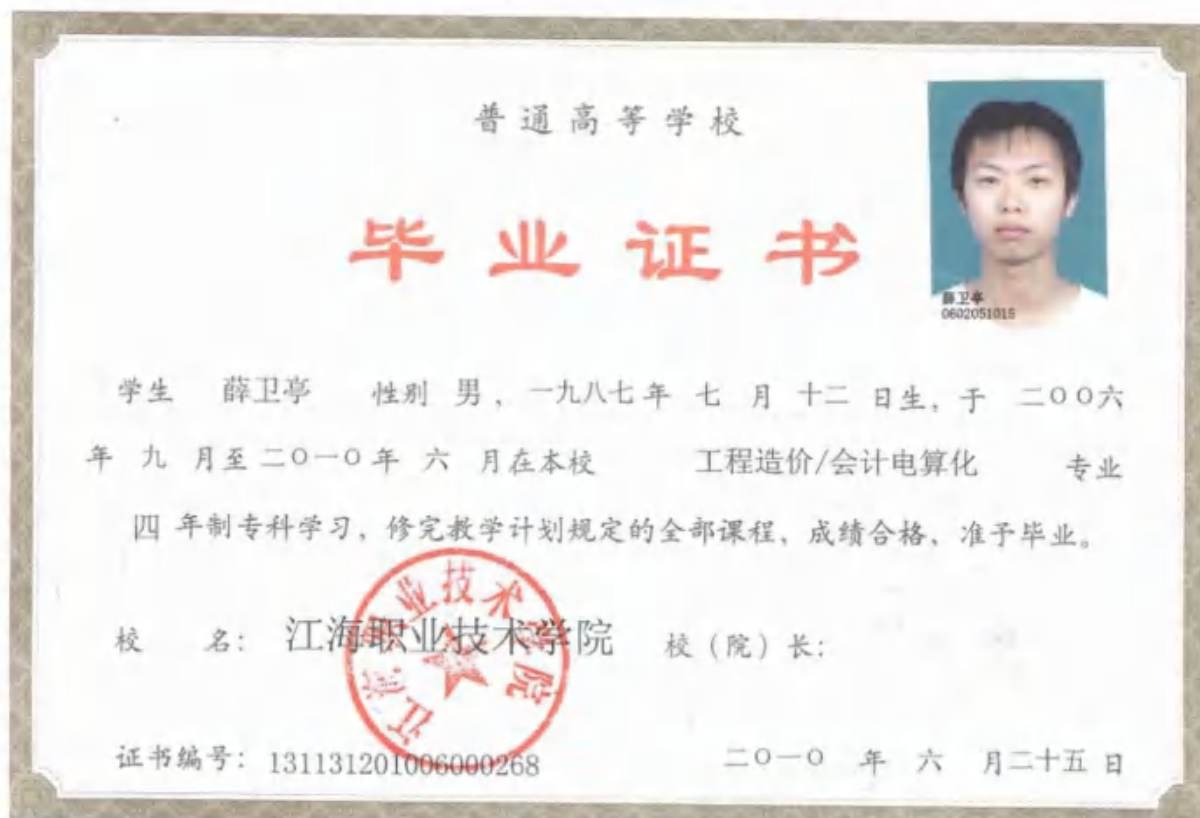 普通高等学校
毕业证书
薛卫亭
0602051015
学生 薛卫亭 性别 男、一九八七年 七 月 十二 日生，于 二〇〇六
年 九 月至 二〇一〇年 六 月在本校 工程造价/会计电算化 专业
四 年制专科学习，修完教学计划规定的全部课程，成绩合格、准予毕业。
校 名：江海职业技术学院 校（院）长：
江海职业技术学院
证书编号：131131201006000268 二〇一〇 年 六 月二十五 日